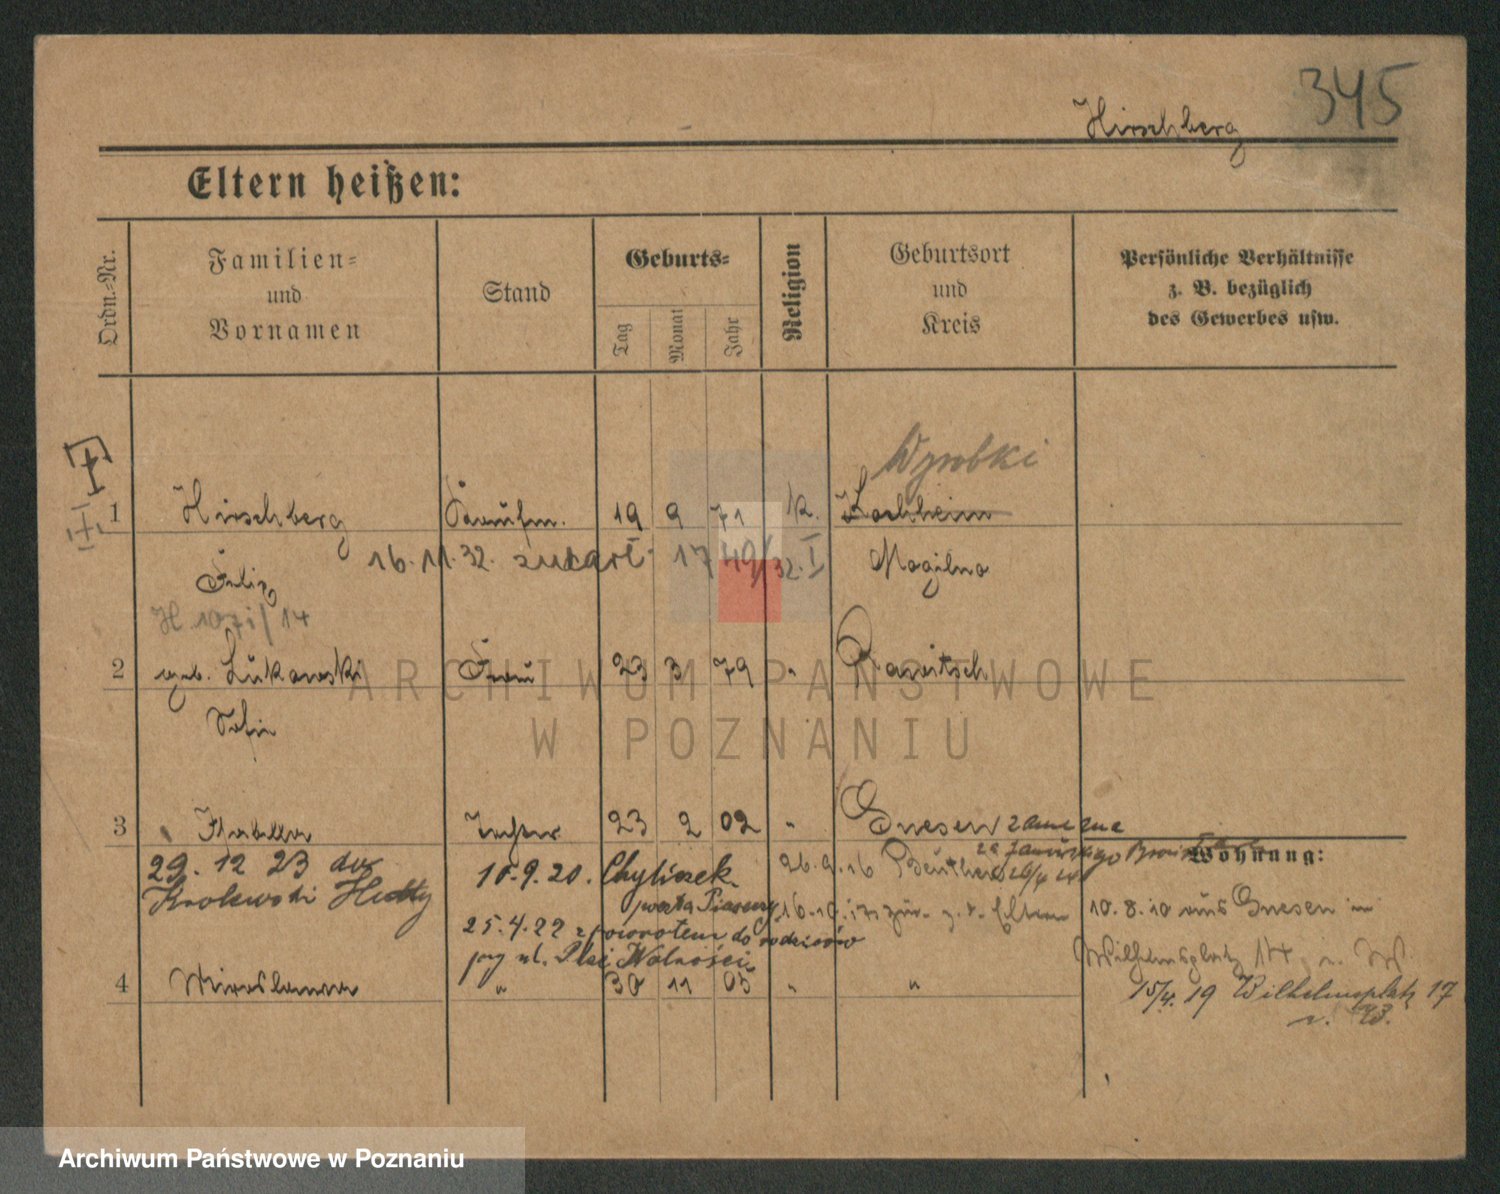 345
Hirschberg
Eltern heißen:
Ordn.-Nr.
Familien-
und
Vornamen
Stand
Geburts-
Tag
Monat
Jahr
Religion
Geburtsort
und
Kreis
Persönliche Verhältnisse
z. B. bezüglich
des Gewerbes usw.
Wyrobki
1 Hirschberg Kaufm. 19 9 71 k. Kochheim
Felix 16.11.32. 1749/32. I Mogilno
H. 1071/14
2 geb. Lukowski Frau 23 3 79 " Rawitsch
Sofie
3 Isabella Tochter 23 2 02 " Gnesen zamężna
za Januszego
Wohnung:
29. 12 23 do
Krolewski Hutty
15.9.20. Chyliczek
poczta Piaseczno
26.9.16 Beuthen
16.10.17 zur. z. d. Eltern
10.8.10 aus Gnesen in
25.4.22 z powrotem do rodziców
przy ul. Plac Wolności
Wilhelmsplatz 17
4 Miroslawa " 30 11 05 " "
15/4. 19 Wilhelmsplatz 17
v. W.
ARCHIWUM PAŃSTWOWE
W POZNANIU
Archiwum Państwowe w Poznaniu